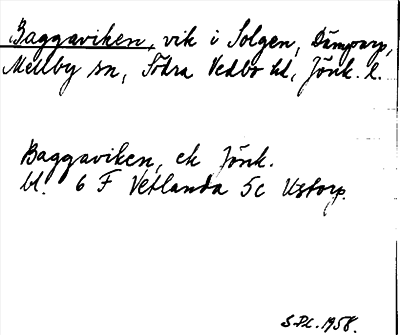 Baggaviken, vik i Solgen, Dämparp,
Mellby sn, Södra Vedbo hd, Jönk. l.
Baggaviken, ek Jönk.
bl. 6 F Vetlanda 5c Ustorp.
S.P.L. 1958.